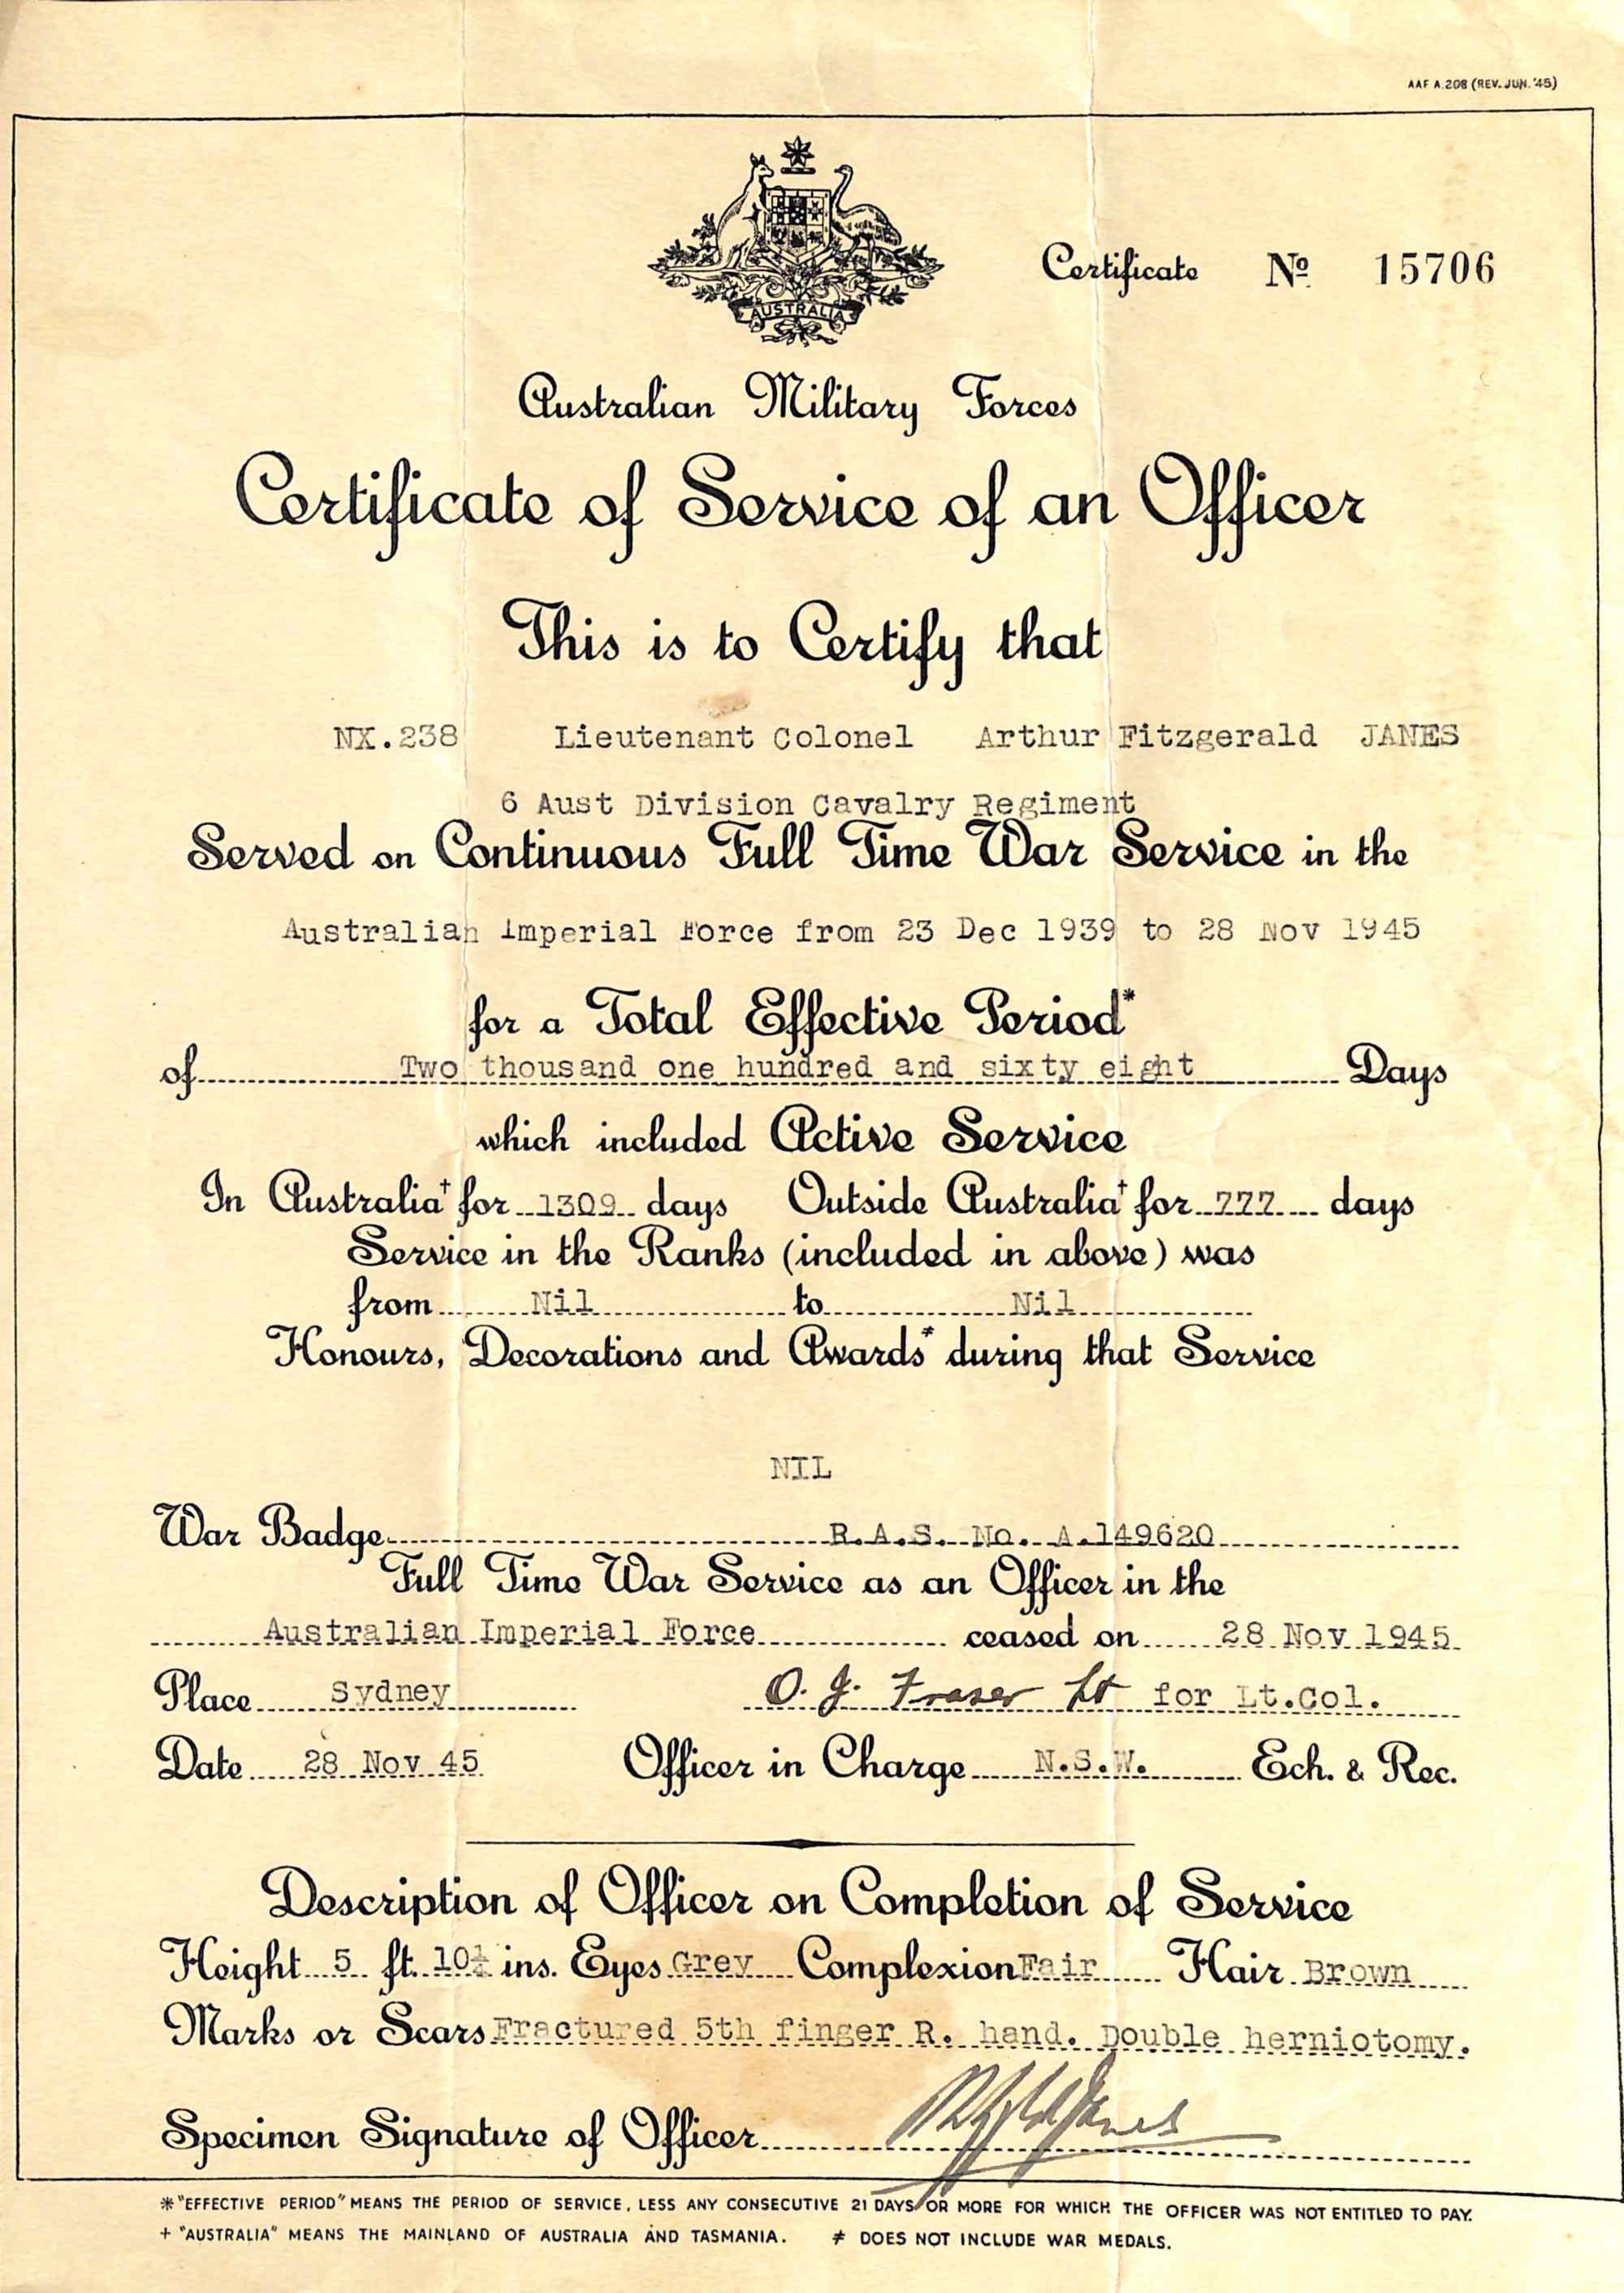 AAF A.208 (REV. JUN. '45)
AUSTRALIA
Certificate No 15706
Australian Military Forces
Certificate of Service of an Officer
This is to Certify that
NX.238 Lieutenant Colonel Arthur Fitzgerald JANES
6 Aust Division Cavalry Regiment
Served on Continuous Full Time War Service in the
Australian Imperial Force from 23 Dec 1939 to 28 Nov 1945
for a Total Effective Period*
of Two thousand one hundred and sixty eight Days
which included Active Service
In Australia+ for 1309 days Outside Australia+ for 777 days
Service in the Ranks (included in above) was
from Nil to Nil
Honours, Decorations and Awards≠ during that Service
NIL
War Badge R.A.S. No. A.149620
Full Time War Service as an Officer in the
Australian Imperial Force ceased on 28 Nov 1945
Place Sydney O. J. Fraser Lt for Lt.Col.
Date 28 Nov 45 Officer in Charge N.S.W. Ech. & Rec.
Description of Officer on Completion of Service
Height 5 ft. 10½ ins. Eyes Grey Complexion Fair Hair Brown
Marks or Scars Fractured 5th finger R. hand. Double herniotomy.
Specimen Signature of Officer
* "EFFECTIVE PERIOD" MEANS THE PERIOD OF SERVICE, LESS ANY CONSECUTIVE 21 DAYS OR MORE FOR WHICH THE OFFICER WAS NOT ENTITLED TO PAY.
+ "AUSTRALIA" MEANS THE MAINLAND OF AUSTRALIA AND TASMANIA. ≠ DOES NOT INCLUDE WAR MEDALS.